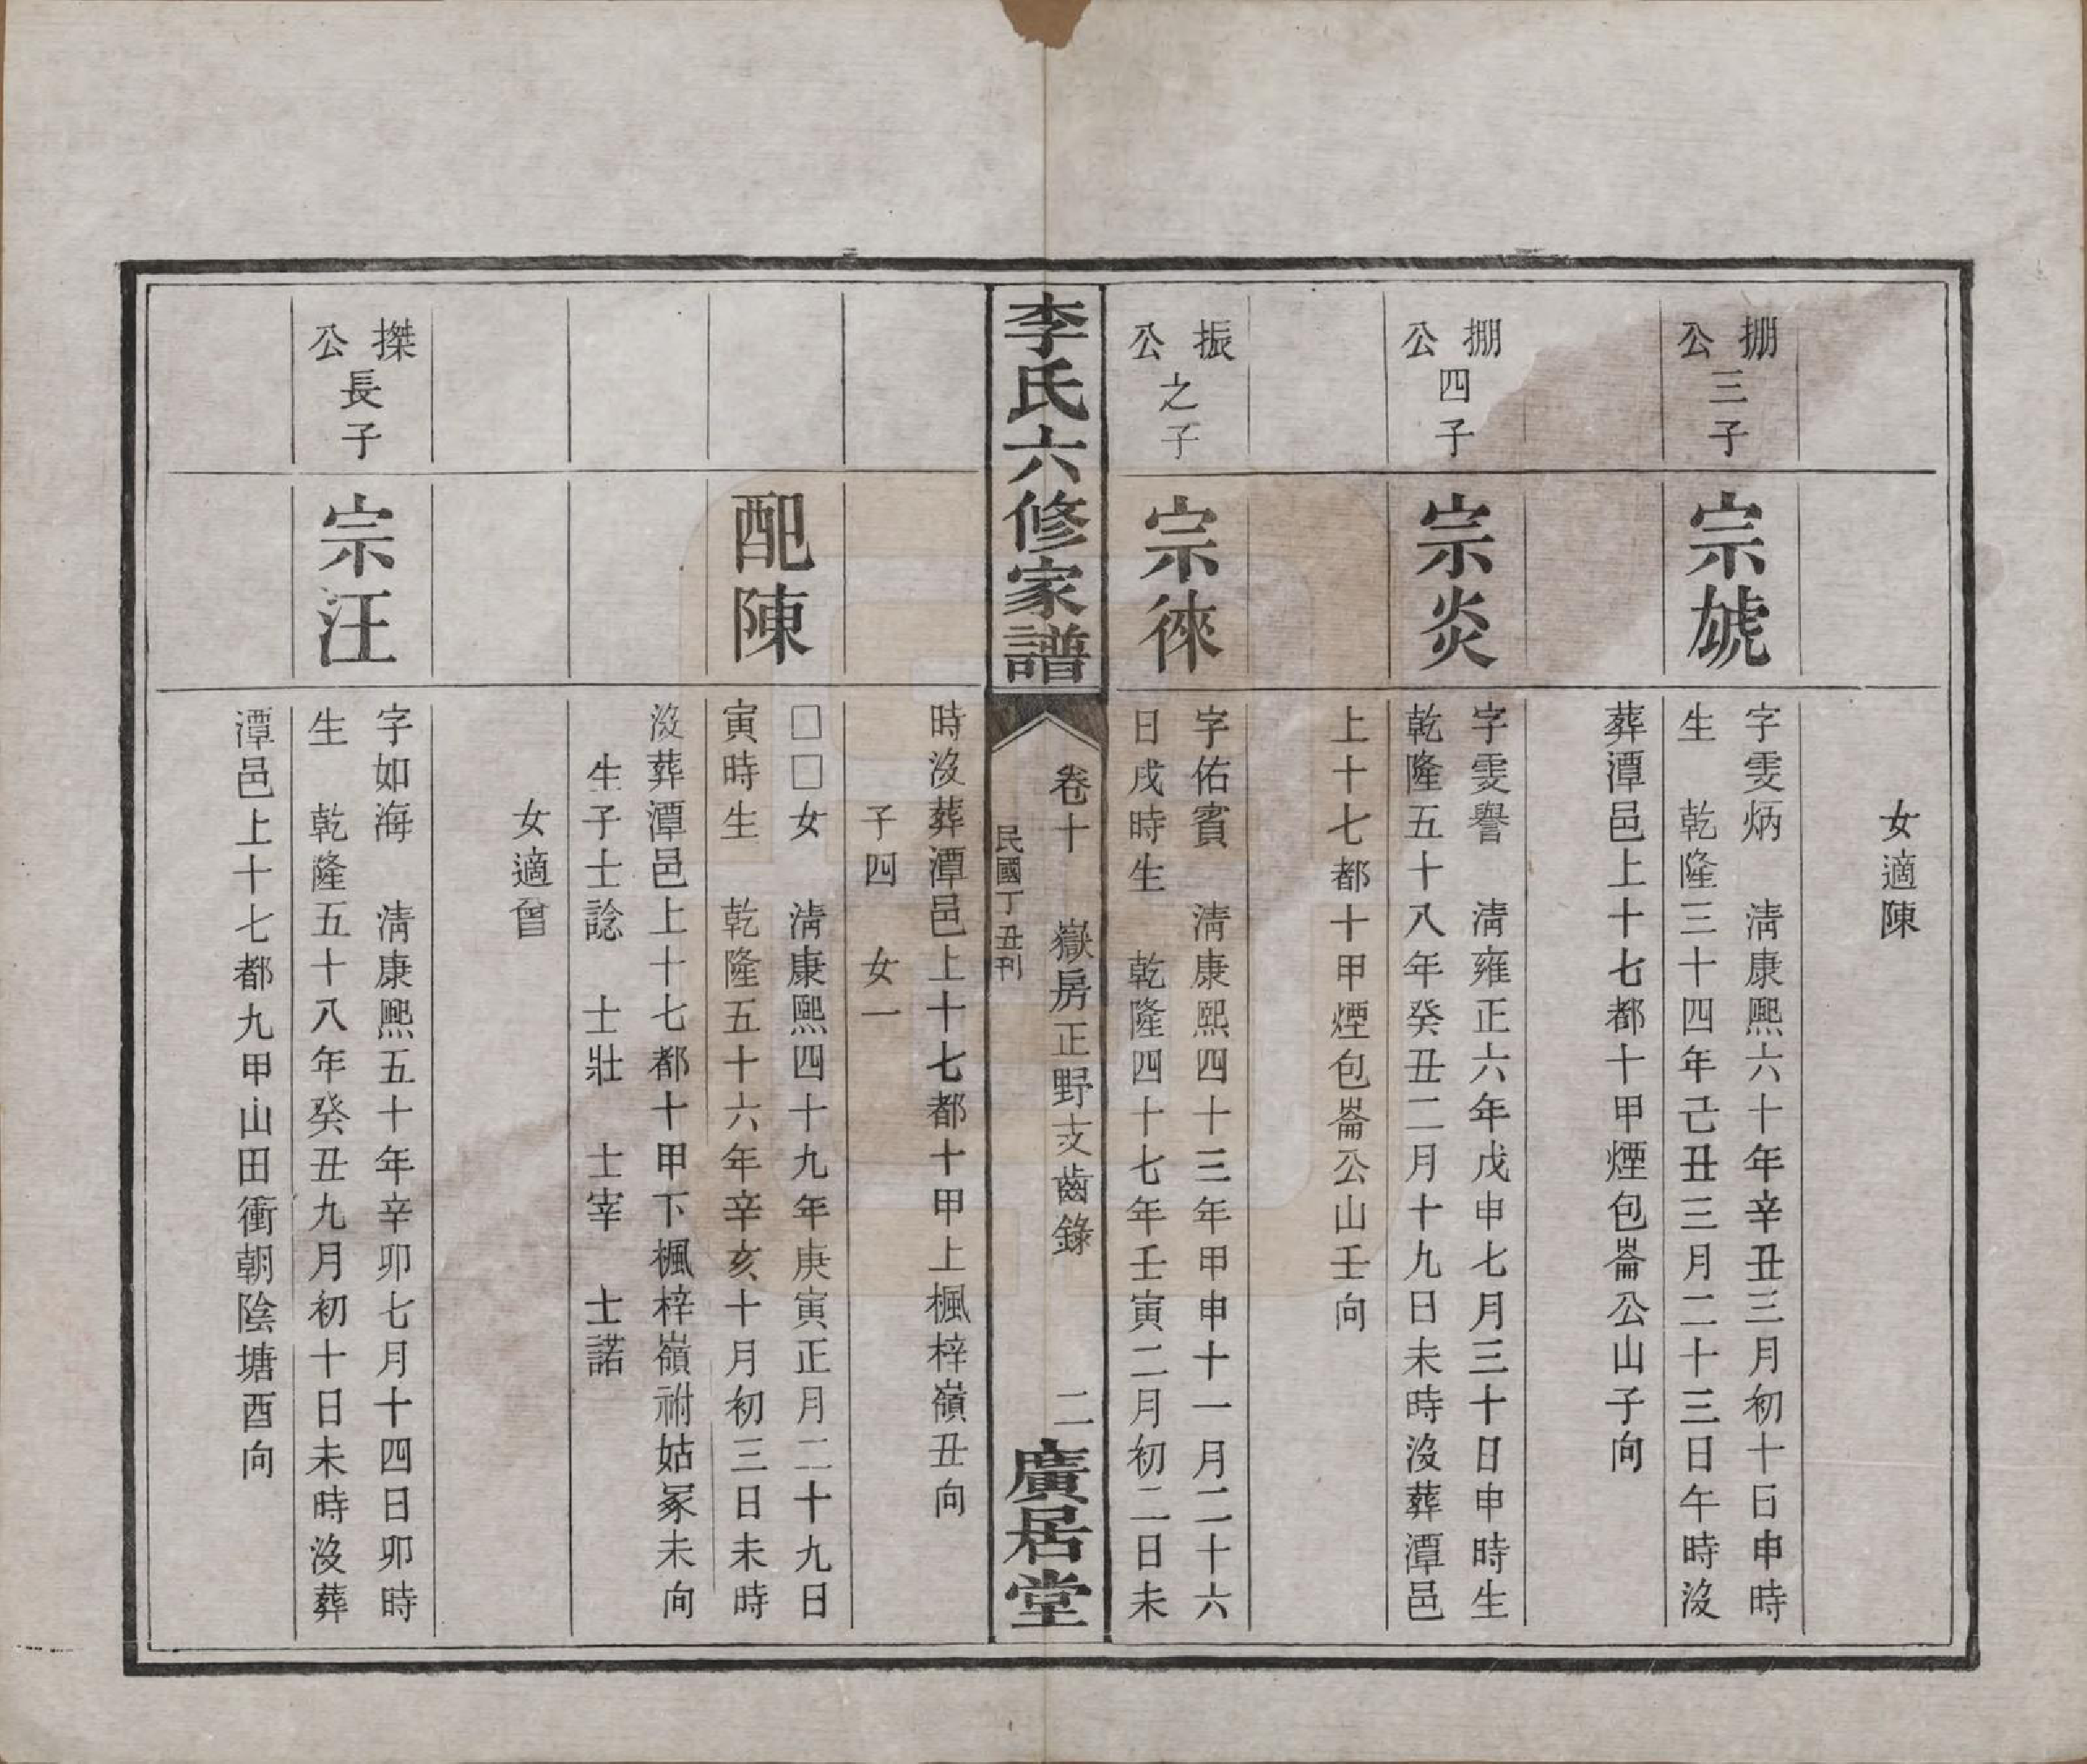 女適陳
掤公三子
宗虠
字雯炳　淸康熙六十年辛丑三月初十日申時
生　乾隆三十四年己丑三月二十三日午時沒
葬潭邑上十七都十甲煙包崙公山子向
掤公四子
宗炎
字雯譽　淸雍正六年戊申七月三十日申時生
乾隆五十八年癸丑二月十九日未時沒葬潭邑
上十七都十甲煙包崙公山壬向
振公之子
宗徠
字佑賓　淸康熙四十三年甲申十一月二十六
日戌時生　乾隆四十七年壬寅二月初二日未
李氏六修家譜
卷十　嶽房正野支齒錄　二
民國丁丑刊
廣居堂
時沒葬潭邑上十七都十甲上楓梓嶺丑向
子四　女一
配陳
□□女　淸康熙四十九年庚寅正月二十九日
寅時生　乾隆五十六年辛亥十月初三日未時
沒葬潭邑上十七都十甲下楓梓嶺祔姑冢未向
生子士諗　士壯　士宰　士諾
女適曾
搩公長子
宗汪
字如海　淸康熙五十年辛卯七月十四日卯時
生　乾隆五十八年癸丑九月初十日未時沒葬
潭邑上十七都九甲山田衝朝陰塘酉向